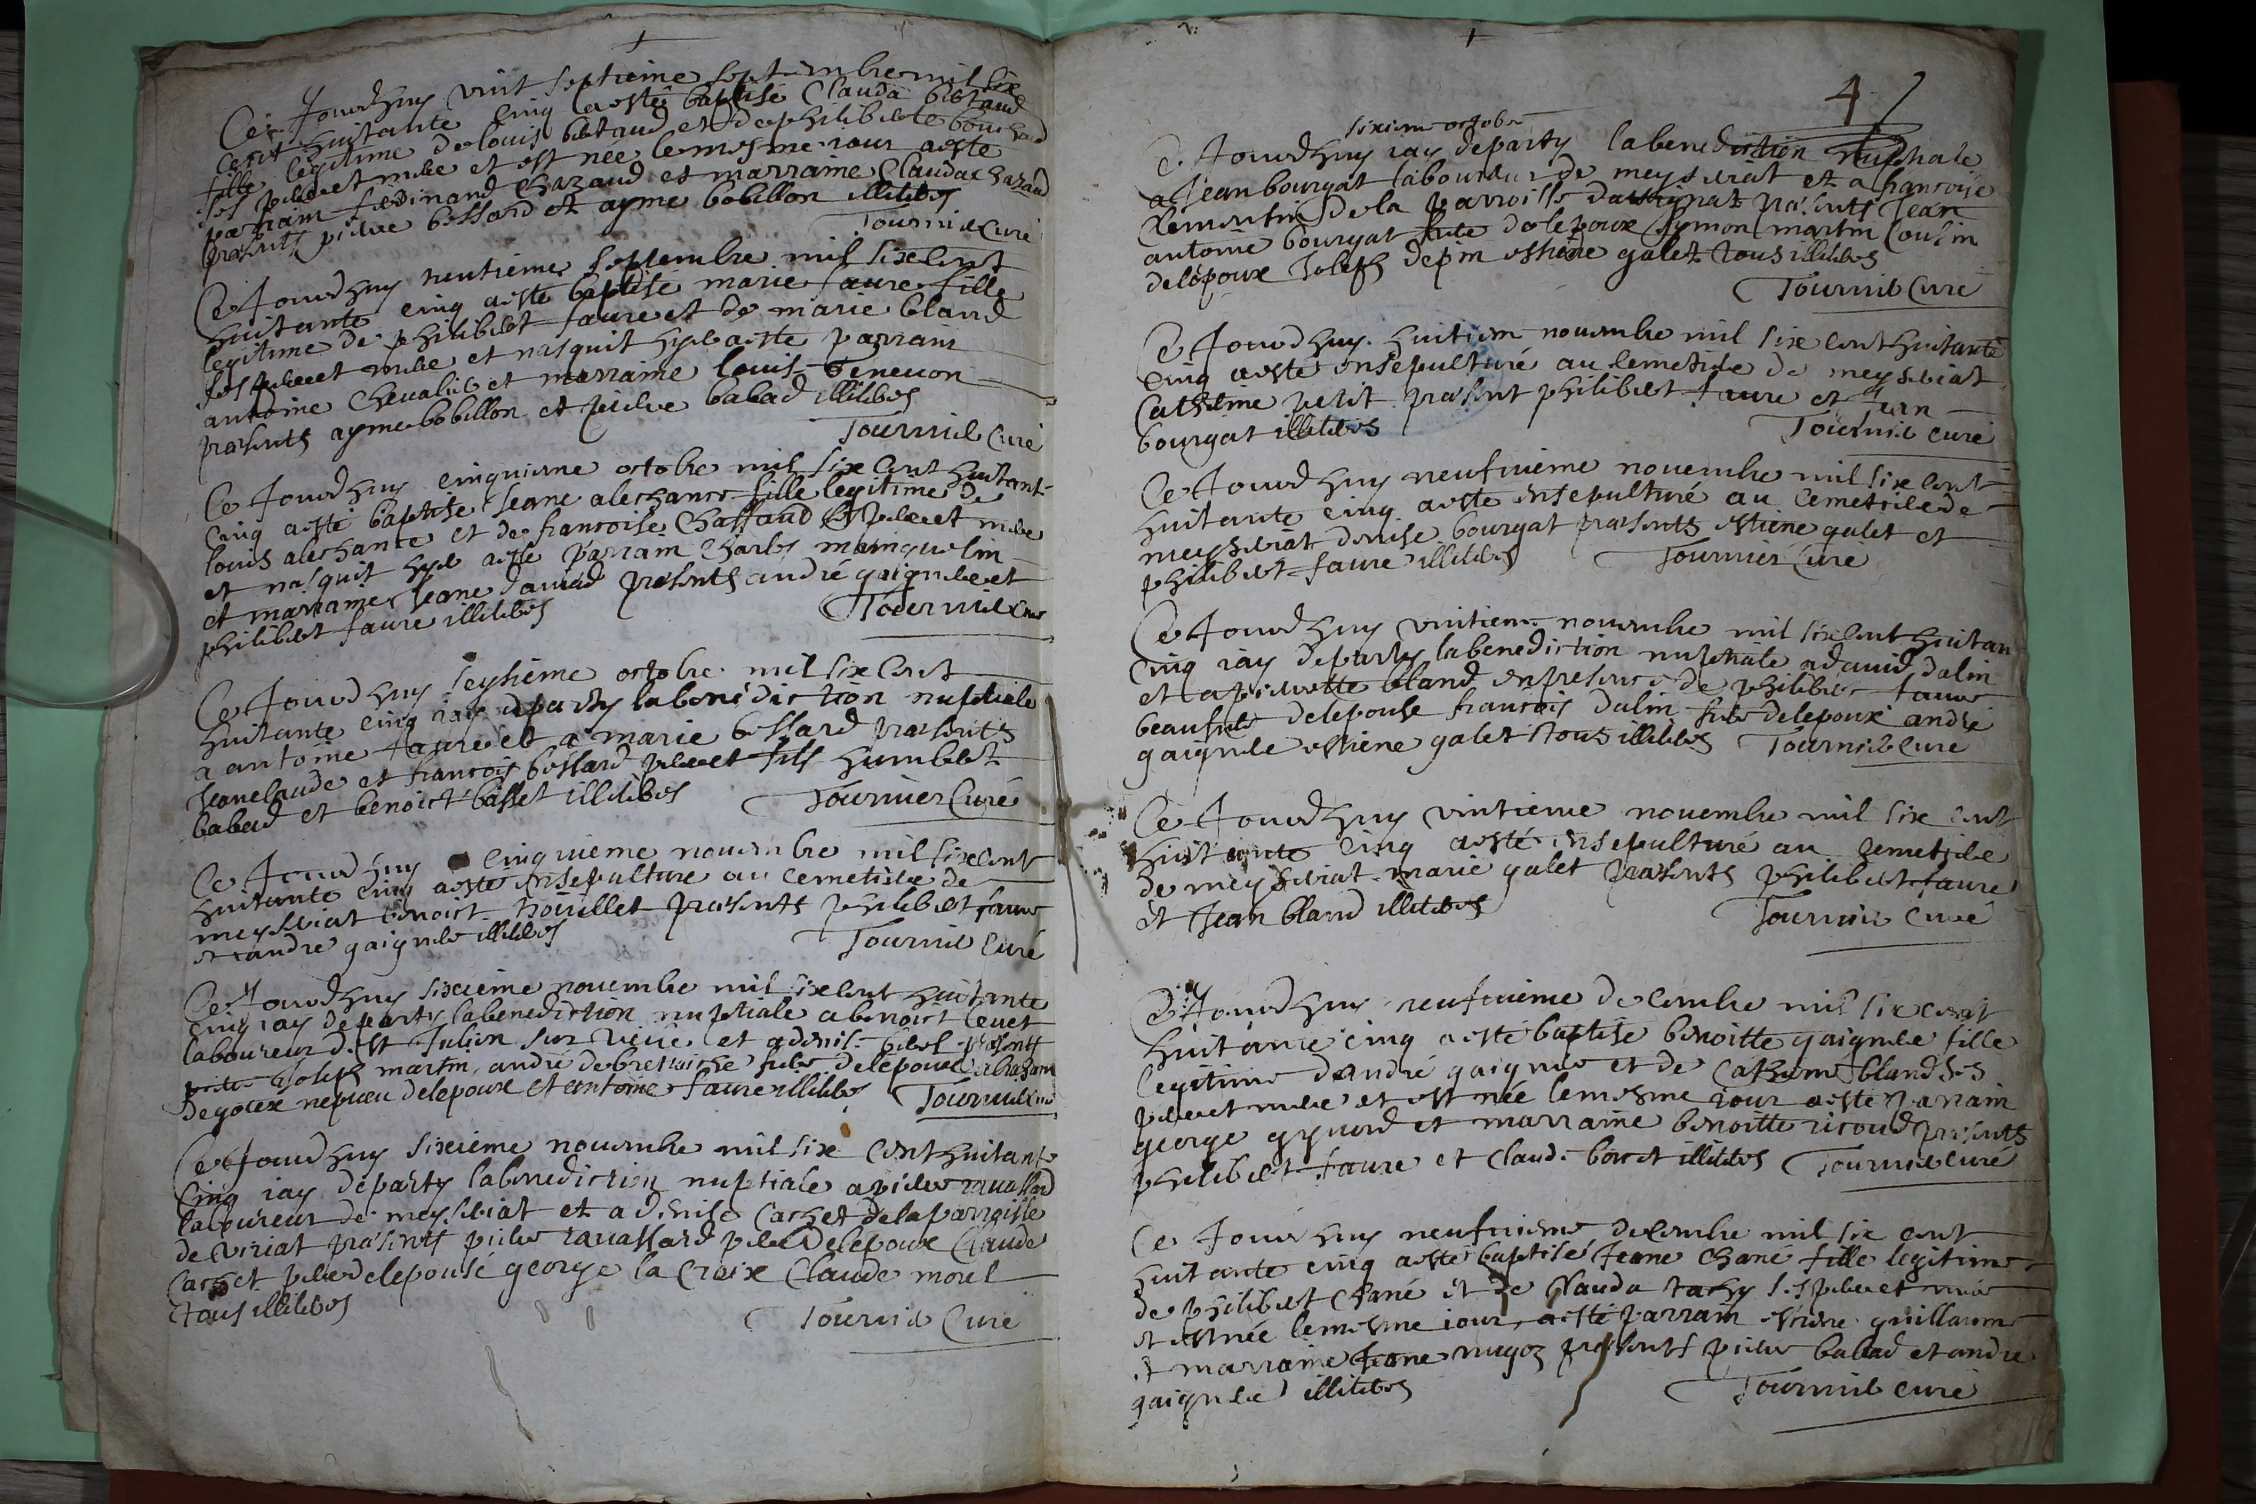 Ce Jourdhuy vint septieme septembre mil six
cent huitante cinq a esté baptisé Clauda bertaud
fille legitime de louis bertaud et de philiberte bouchard
ses pere et mere et est née le mesme iour a esté
parrain ferdinand chazaud et marraine Clauda chazaud
presents pierre bossard et ayme bobillon illiteres
Tournier Curé
Ce Jourdhuy trentieme septembre mil six cent
huitante cinq a esté baptisé marie faure fille
legitime de philibert faure et de marie bland
ses pere et mere et nasquit hyer a esté parrain
antoine Chevalier et marraine louise
presents ayme bobillon et pierre babad illiteres
Tournier Curé
Ce Jourdhuy cinquieme octobre mil six cent huitant
cinq a esté baptisé Jeane alechance fille legitime de
louis alechance et de francoise Chassaud ses pere et mere
et nasquit hyer a esté parrain Charles
et marraine Jeane david presents andré gaignere et
philibert faure illiteres
Tournier Cure
Ce Jourdhuy seysieme octobre mil six cent
huitante cinq iay departy la benediction nuptiale
a antoine faure et a marie bossard presents
Jeanclaude et francois bossard pere et fils humbert
babad et benoict basset illiteres
Tournier Curé
Ce Jourdhuy cinquieme novembre mil six cent
huitante cinq a esté ensepulturé au cemetiere de
meyseriat benoict trouillet presents philibert faure
et andre gaignere illiteres
Tournier Curé
Ce Jourdhuy sixieme novembre mil six cent huitante
cinq iay departy la benediction nuptiale a benoict levet
laboureur de st Julien sur vele et a denise presents
Joseph martin, andré frere de lepouse
nepveu de lepoux et antoine faure illiteres
Tournier Cure
Ce Jourdhuy sixieme novembre mil six cent huitante
cinq iay departy la benediction nuptiale a pierre ravassard
laboureur de meyseriat et a denise cachet de la parroisse
de viriat presents pierre ravassard pere de lepoux Claude
cachet pere de lepouse george la Croix Claude morel
tous illiteres
Tournier Curé
4
sixieme octobre
Ce Jourdhuy iay departy la benediction nuptiale
a Jean bourgat laboureur de meyseriat et a francoise
de la parroisse presents Jean
antoine bourgat frere de lepoux symon martin cousin
de lepoux Joseph depin estiene galet tous illiteres
Tournier Curé
Ce Jourdhuy huitiem novembre mil six cent huitante
cinq a esté ensepulturé au cemetiere de meyseriat
Catherine petit present philibert faure et Jean
bourgat illiteres
Tournier curé
Ce Jourdhuy neufvieme novembre mil six cent
huitante cinq a esté ensepulturé au cemetiere de
meyseriat denise bourgat presents estiene galet et
philibert faure illiteres
Tournier Cure
Ce Jourdhuy vintiem novembre mil six cent huitan
cinq iay departy la benediction nuptiale a david dalin
et a pierrette bland en presence de philibert faure
beaufrere de lepouse francois dalin frere de lepoux andré
gaignere estiene galet tous illiteres Tournier Curé
Ce Jourdhuy vintieme novembre mil six cent
huitante cinq a esté ensepulturé au cemetiere
de meyseriat marie galet presents philibert faure
et Jean bland illiteres
Tournier Curé
Ce Jourdhuy neufvieme decembre mil six cent
huitante cinq a esté baptisé benoitte gaignere fille
legitime dandré gaignere et de Catherine bland ses
pere et mere et est née le mesme iour a esté parrain
george et marraine benoitte presents
philibert faure et claude illiteres Tournier curé
Ce Jourdhuy neufvieme decembre mil six cent
huitante cinq a esté baptisé Jeane Chané fille legitime
de philibert Chané et de Clauda ses pere et mere
et est née le mesme iour a esté parrain estiene guillaume
et marraine Jeane presents pierre babad et andre
gaignere illiteres
Tournier curé